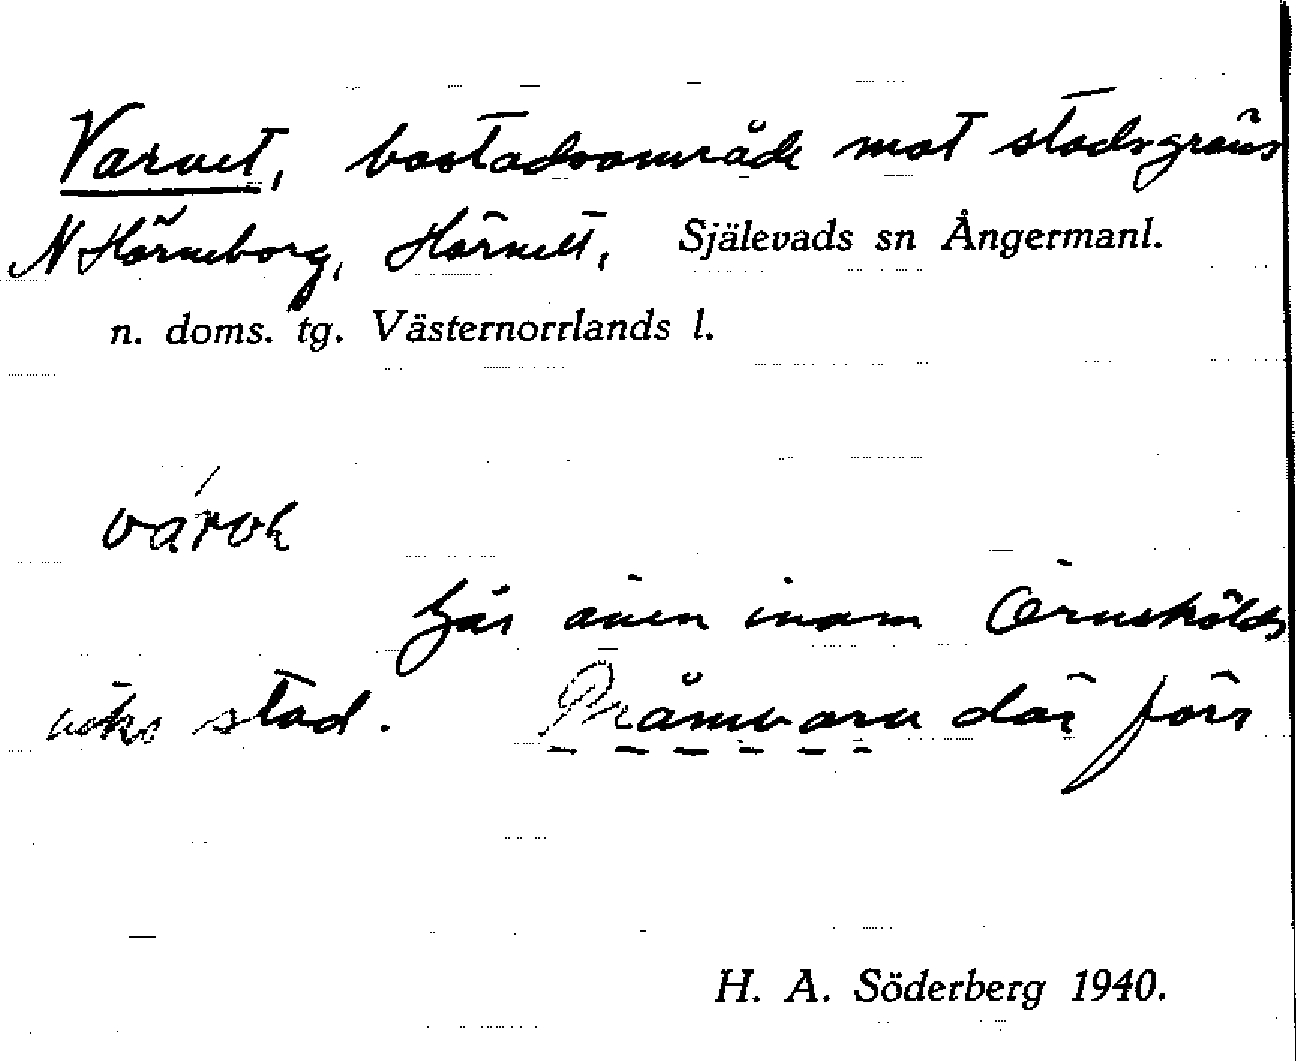 Varvet, bostadsområde mot stadsgräns
N Hörneborg, Hörnett, Själevads sn Ångermanl.
n. doms. tg. Västernorrlands l.
várvε
här även inom Örnskölds
viks stad. Pråmvarv där förr
H. A. Söderberg 1940.